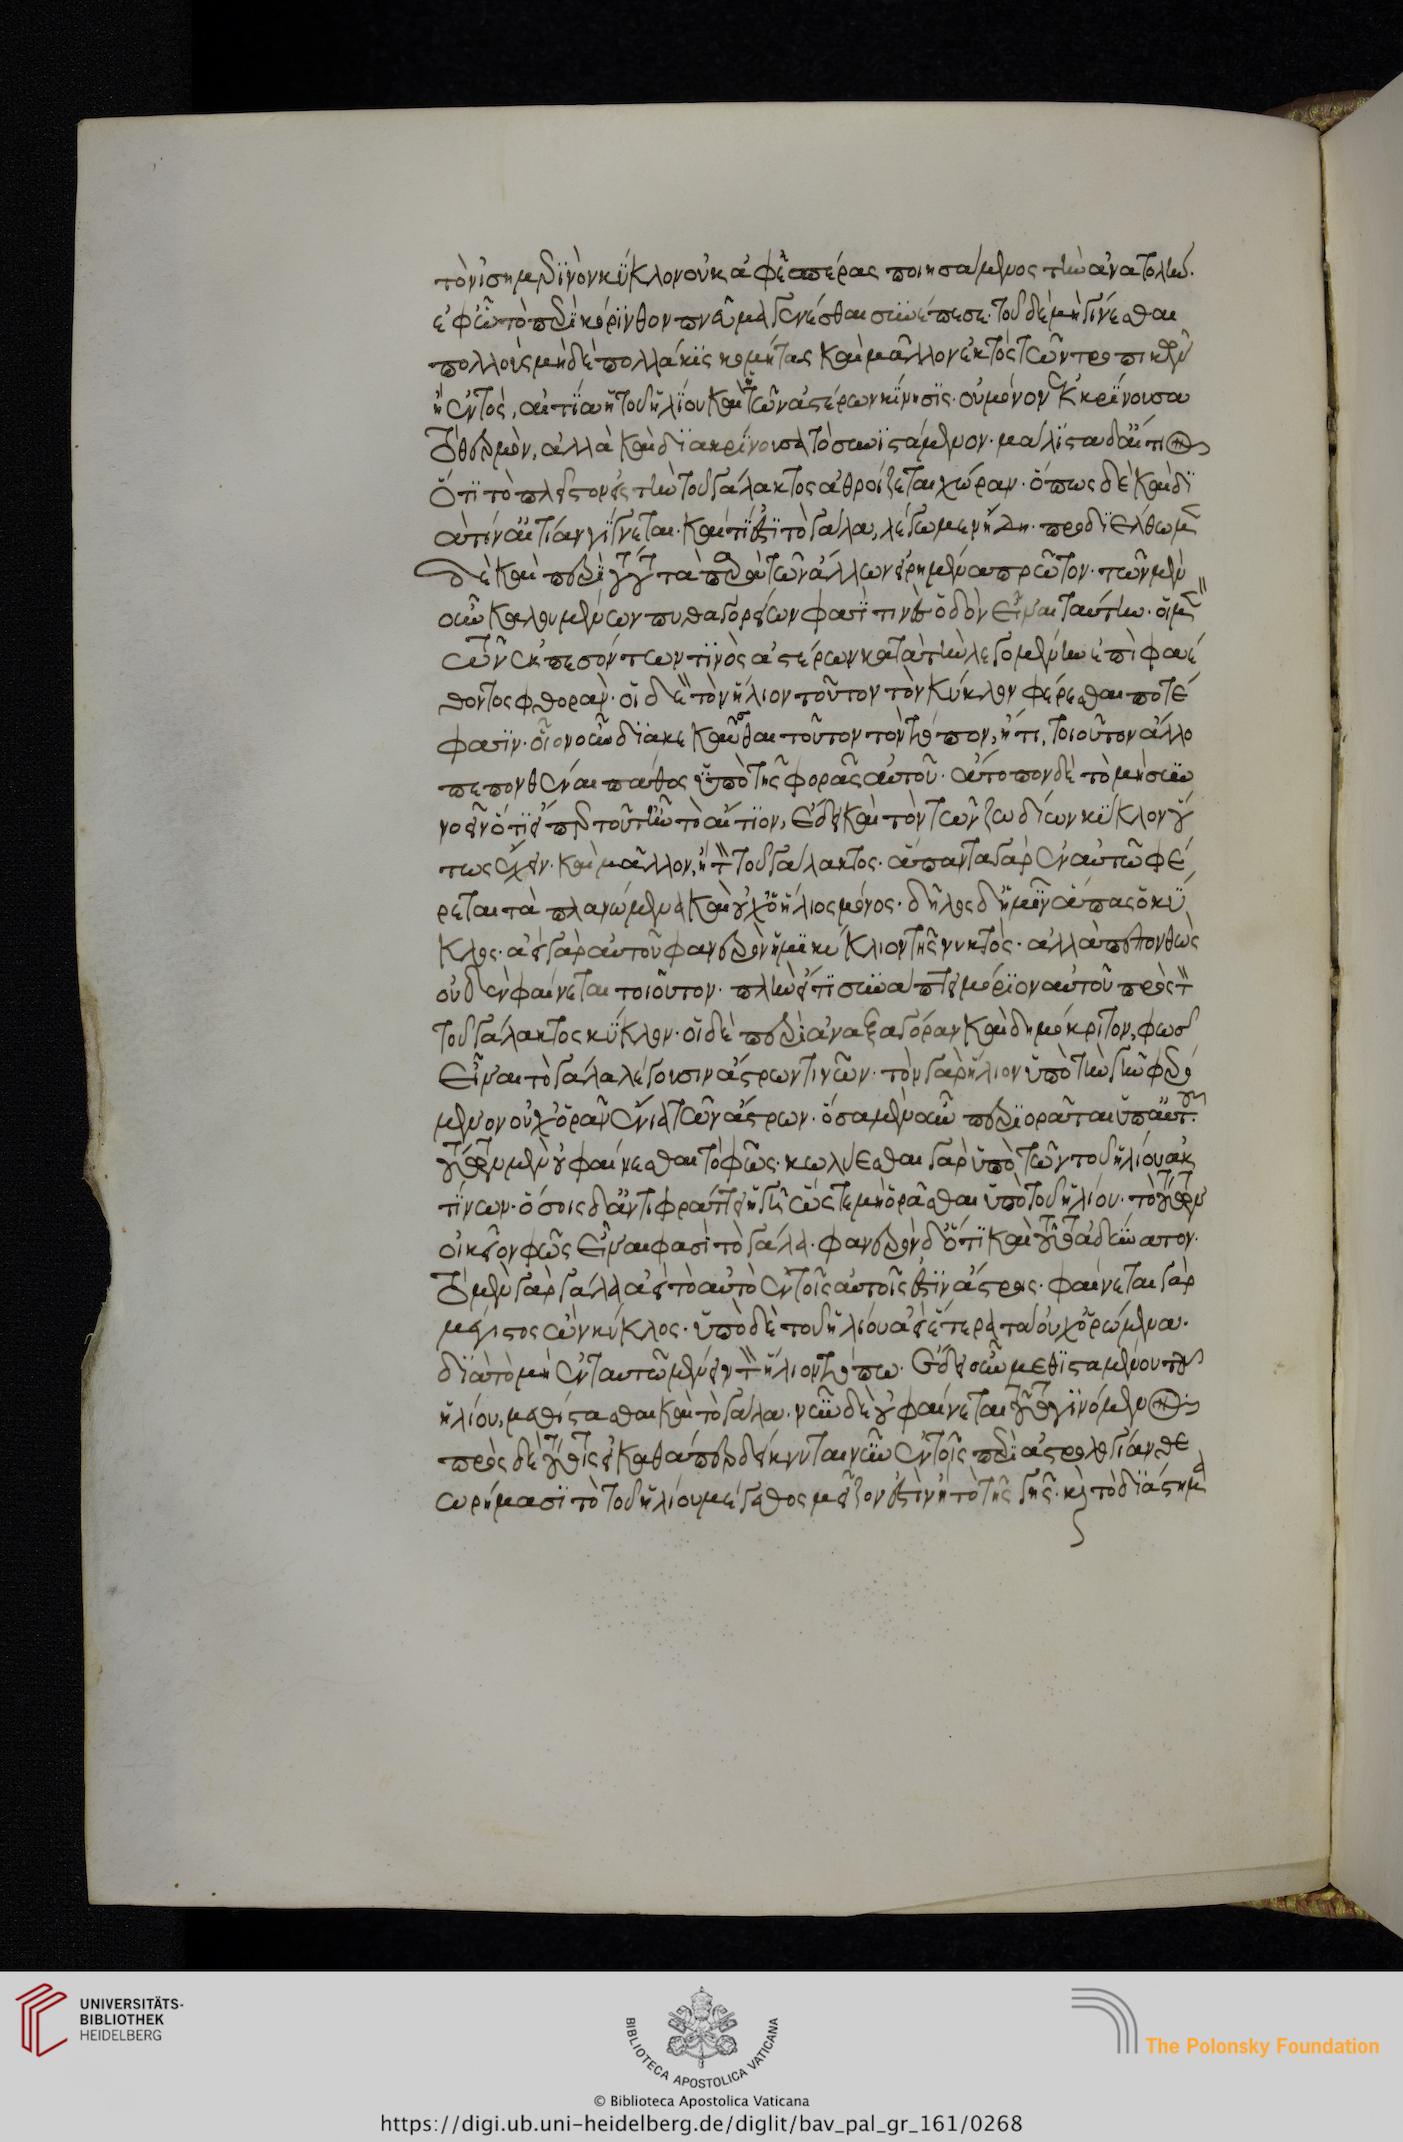 τὸν ἰσημερϊνὸν κύκλον οὐκ ἀφ' ἑσπέρας ποιησάμενος τὴν ἀνατολὴν.
ἐφ' ὧ τὸ περὶ κόρϊνθον πνεῦμα γενέσθαι συνέπεσε. τοῦ δὲ μὴ γίνεσθαι
πολλοὺς μὴδὲ πολλάκϊς κομήτας καὶ μᾶλλον ἐκτὸς τῶν τροπικῶν
ἢ ἐντὸς, αἰτία ἡ τοῦ ἡλίου καὶ ἡ τῶν ἀστέρων κίνησϊς. οὐ μόνον ἐκκρίνουσα
τὸ θερμὸν, ἀλλὰ καὶ δϊακρίνουσα τὸ συνϊστάμενον. μάλϊστα δ' αἴτιον
ὅτϊ τὸ πλεῖστον εἰς τὴν τοῦ γάλακτος ἀθροίζεται χώραν. ὅπως δὲ καὶ δϊ
ὰ τίν' αἰτίαν γίγνεται. καὶ τί ἐστϊ τὸ γάλα, λέγωμεν ἤδη. προδϊέλθωμεν
δὲ καὶ περὶ τούτου τὰ παρὰ τῶν ἄλλων εἰρημένα πρῶτον. τῶν μὲν
οὖν καλουμένων πυθαγορείων φασΐ τινες ὁδὸν εἶναι ταύτην. οἱ μὲν
τῶν ἐκπεσόντων τϊνὸς ἀστέρων κατὰ τὴν λεγομένην ἐπὶ φαέ
θοντος φθορὰν. οἱ δὲ τὸν ἥλιον τοῦτον τὸν κύκλον φέρεσθαι ποτέ
φασϊν. οἷον οὖν δϊακεκαῦσθαι τοῦτον τὸν τόπον, ἤ τι, τοιοῦτον ἄλλο
πεπονθέναι πάθος ὑπὸ τῆς φορᾶς αὐτοῦ. ἄτοπον δὲ τὸ μὴ συν
νοεῖν ὅτϊ εἴπερ τοῦτ' ἦν τὸ αἴτϊον, ἔδει καὶ τὸν τῶν ζωδίων κύκλον οὕ
τως ἔχειν. καὶ μᾶλλον, ἢ τὸν τοῦ γάλακτος. ἅπαντα γὰρ ἐν αὐτῶ φέ
ρεται τὰ πλανώμενα καὶ οὐχ ὁ ἥλιος μόνος. δῆλος δ' ἡμῖν ἅπας ὁ κύ
κλος. ἀεὶ γὰρ αὐτοῦ φανερὸν ἡμϊκύκλιον τῆς νυκτὸς. ἀλλὰ πεπονθὼς
οὐδὲν φαίνεται τοιοῦτον. πλὴν εἴ τϊ συνάπτει μόρϊον αὐτοῦ πρὸς τὸν
τοῦ γάλακτος κύκλον. οἱ δὲ περὶ ἀναξαγόραν καὶ δημόκριτον, φῶς
εἶναι τὸ γάλα λέγουσιν ἄστρων τινῶν. τὸν γὰρ ἥλιον ὑπὸ τὴν γῆν φερό
μενον οὐχ ὁρᾶν ἔνια τῶν ἄστρων. ὅσα μὲν οὖν περϊορᾶται ὑπ' αὐτοῦ.
τούτων μὲν οὐ φαίνεσθαι τὸ φῶς. κωλύεσθαι γὰρ ὑπὸ τῶν τοῦ ἡλίου ἀκ
τίνων. ὅσοις δ' ἀντιφράττει ἡ γῆ ὥστε μὴ ὁρᾶσθαι ὑπὸ τοῦ ἡλίου. τὸ τούτων
οἰκεῖον φῶς εἶναι φασὶ τὸ γάλα. φανερὸν δ' ὅτϊ καὶ τοῦτ' ἀδύνατον.
τὸ μὲν γὰρ γάλα ἀεὶ τὸ αὐτὸ ἐν τοῖς αὐτοῖς ἐστϊν ἄστροις. φαίνεται γὰρ
μέγιστος ὢν κύκλος. ὑπὸ δὲ τοῦ ἡλίου ἀεὶ ἕτερα τὰ οὐχ ὁρώμενα.
δϊὰ τὸ μὴ ἐν ταυτῶ μένειν τὸν ἥλιον τόπω. ἔδει οὖν μεθϊσταμένου τοῦ
ἡλίου, μεθίστασθαι καὶ τὸ γάλα. νῦν δὲ οὐ φαίνεται τοῦτο γϊνόμενον
πρὸς δὲ τούτοις εἰ καθάπερ δείκνυται νῦν ἐν τοῖς περὶ ἀστρολογίαν θε
ωρήμασϊ τὸ τοῦ ἡλίου μέγεθος μεῖζον ἐστὶν ἢ τὸ τῆς γῆς. καὶ τὸ δϊάστημα
UNIVERSITÄTS-
BIBLIOTHEK
HEIDELBERG
BIBLIOTECA APOSTOLICA VATICANA
The Polonsky Foundation
© Biblioteca Apostolica Vaticana
https://digi.ub.uni-heidelberg.de/diglit/bav_pal_gr_161/0268